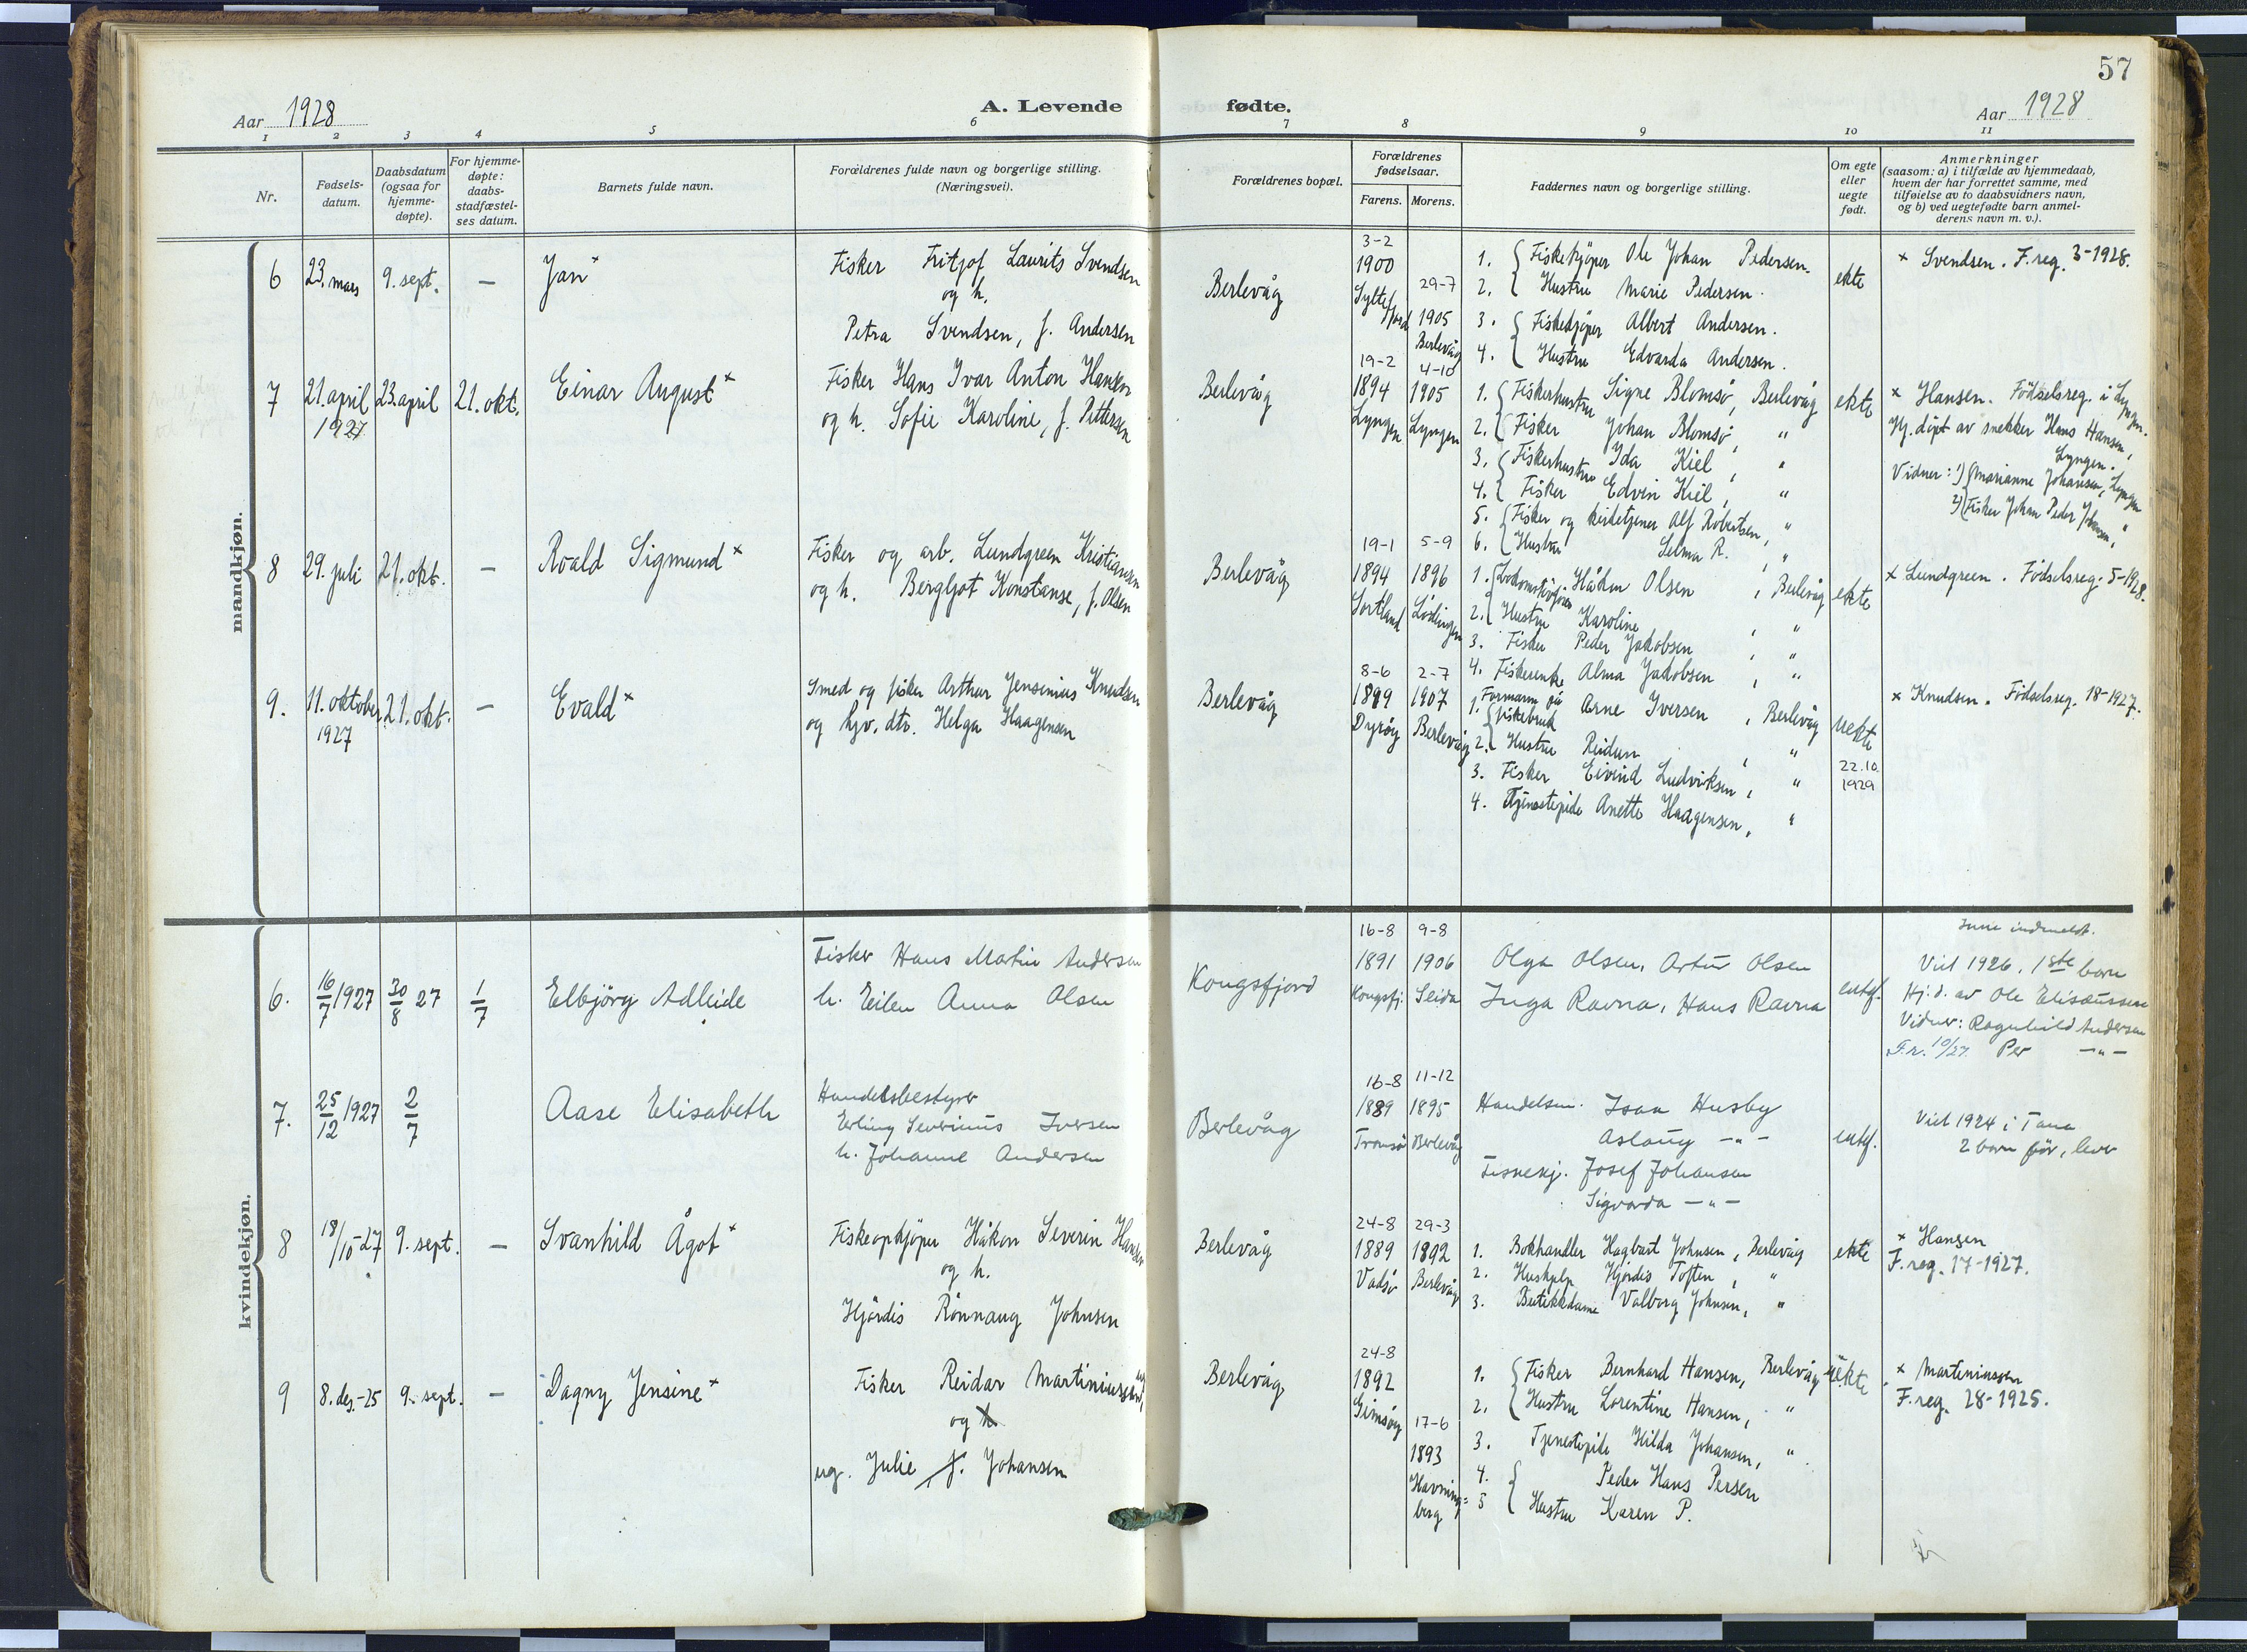 57
Aar 1928
A. Levende fødte.
Aar 1928
1 2 3 4 5 6 7 8 9 10 11
Nr.
Fødsels-
datum.
Daabsdatum
(ogsaa for
hjemme-
døpte).
For hjemme-
døpte:
daabs-
stadfæstel-
ses datum.
Barnets fulde navn.
Forældrenes fulde navn og borgerlige stilling.
(Næringsvei).
Forældrenes bopæl.
Forældrenes
fødselsaar.
Farens. Morens.
Faddernes navn og borgerlige stilling.
Om egte
eller
uegte
født.
Anmerkninger
(saasom: a) i tilfælde av hjemmedaab,
hvem der har forrettet samme, med
tilføielse av to daabsvidners navn,
og b) ved uegtefødte barn anmel-
derens navn m. v.).
mandkjøn.
6 23. mars 9. sept. – Jan ×
Fisker Fritjof Laurits Svendsen
og h.
Petra Svendsen, f. Andersen
Berlevåg
3-2
1900
Syltefjord
29-7
1905
Berlevåg
1. Fiskekjöper Ole Johan Pedersen.
2. Hustru Marie Pedersen.
3. Fiskekjöper Albert Andersen.
4. Hustru Edvarda Andersen.
ekte
× Svendsen. F.reg. 3-1928.
7 21. april 23. april 21. okt. Einar August ×
1927
Fisker Hans Ivar Anton Hansen
og h. Sofie Karoline, f. Pettersen
Berlevåg
19-2
1894
Lyngen
4-10
1905
Lyngen
1. Fiskerhustru Signe Blomsö, Berlevåg
2. Fisker Johan Blomsö, "
3. Fiskerhustru Ida Kiel, "
4. Fisker Edvin Kiel, "
5. Fisker og kirketjener Alf Robertsen, "
6. Hustru Selma R. , "
ekte
× Hansen. Födselsreg. i Lyngen.
Hj. döpt av snekker Hans Hansen,
Lyngen.
Vidner: 1) Marianne Johansen, Lyngen
2) Fisker Johan Peder Johansen, "
8 29. juli 21. okt. – Roald Sigmund ×
Fisker og arb. Lundgreen Kristiansen
og h. Bergljot Konstanse, f. Olsen
Berlevåg
19-1
1894
Sortland
5-9
1896
Lödingen
1. Håkon Olsen , Berlevåg
2. Hustru Karoline , "
3. Fisker Peder Jakobsen , "
4. Fiskerenke Alma Jakobsen , "
ekte
× Lundgreen. Födselsreg. 5-1928.
9. 11. oktober 21. okt. – Evald ×
1927
Smed og fisker Arthur Jensenius Knudsen
og hjv. dtr. Helga Haagensen
Berlevåg
8-6
1899
Dyröy
2-7
1907
Berlevåg
1. Formann på
fiskebruk Arne Iversen , Berlevåg
2. Hustru Reidun , "
3. Fisker Eivind Ludviksen, "
4. Tjenestepike Anette Haagensen, "
uekte
22.10.
1929
× Knudsen. Födselsreg. 18-1927.
kvindekjøn.
6. 16/7 1927 30/8 27 1/7 Elbjörg Adleide
Fisker Hans Martin Andersen
h. Eilen Anna Olsen
Kongsfjord
16-8
1891
Kongsfj.
9-8
1906
Seida
Olga Olsen, Artur Olsen
Inga Ravna, Hans Ravna
Viet 1926. 1ste barn
Hj.d. av Ole Elisæussen
Vidner: Ragnhild Andersen
F.r. 10/27. Per —"—
7. 25/12 1927 2/7 Aase Elisabeth
Handelsbestyrer
Erling Severinus Iversen
h. Johanne Andersen
Berlevåg
16-8
1889
Tromsö
11-12
1895
Berlevåg
Handelsm. Isak Husby
Aslaug —"—
Fiskekj. Josef Johansen
Sigvarda —"—
Viet 1924 i Tana
2 barn för, lever
8 18/10-27 9. sept. – Svanhild Ågot ×
Fiskeopkjöper Håkon Severin Hansen
og h.
Hjördis Rönnaug Johnsen
Berlevåg
24-8
1889
Vadsö
29-3
1892
Berlevåg
1. Bokhandler Hagbart Johnsen, Berlevåg
2. Hushjelp Hjördis Toften, "
3. Butikkdame Valborg Johnsen, "
ekte
× Hansen
F.reg. 17-1927.
9 8. des.-25 9. sept. – Dagny Jensine ×
Fisker Reidar Martiniussen,
og h
ug. Julie f. Johansen
Berlevåg
24-8
1892
Gimsöy
17-6
1893
Havning=
berg
1. Fisker Bernhard Hansen, Berlevåg
2. Hustru Lorentine Hansen, "
3. Tjenestepike Hilda Johansen, "
4. Peder Hans Persen
5 Hustru Karen P.
uekte
× Marteniussen
F.reg. 28-1925.